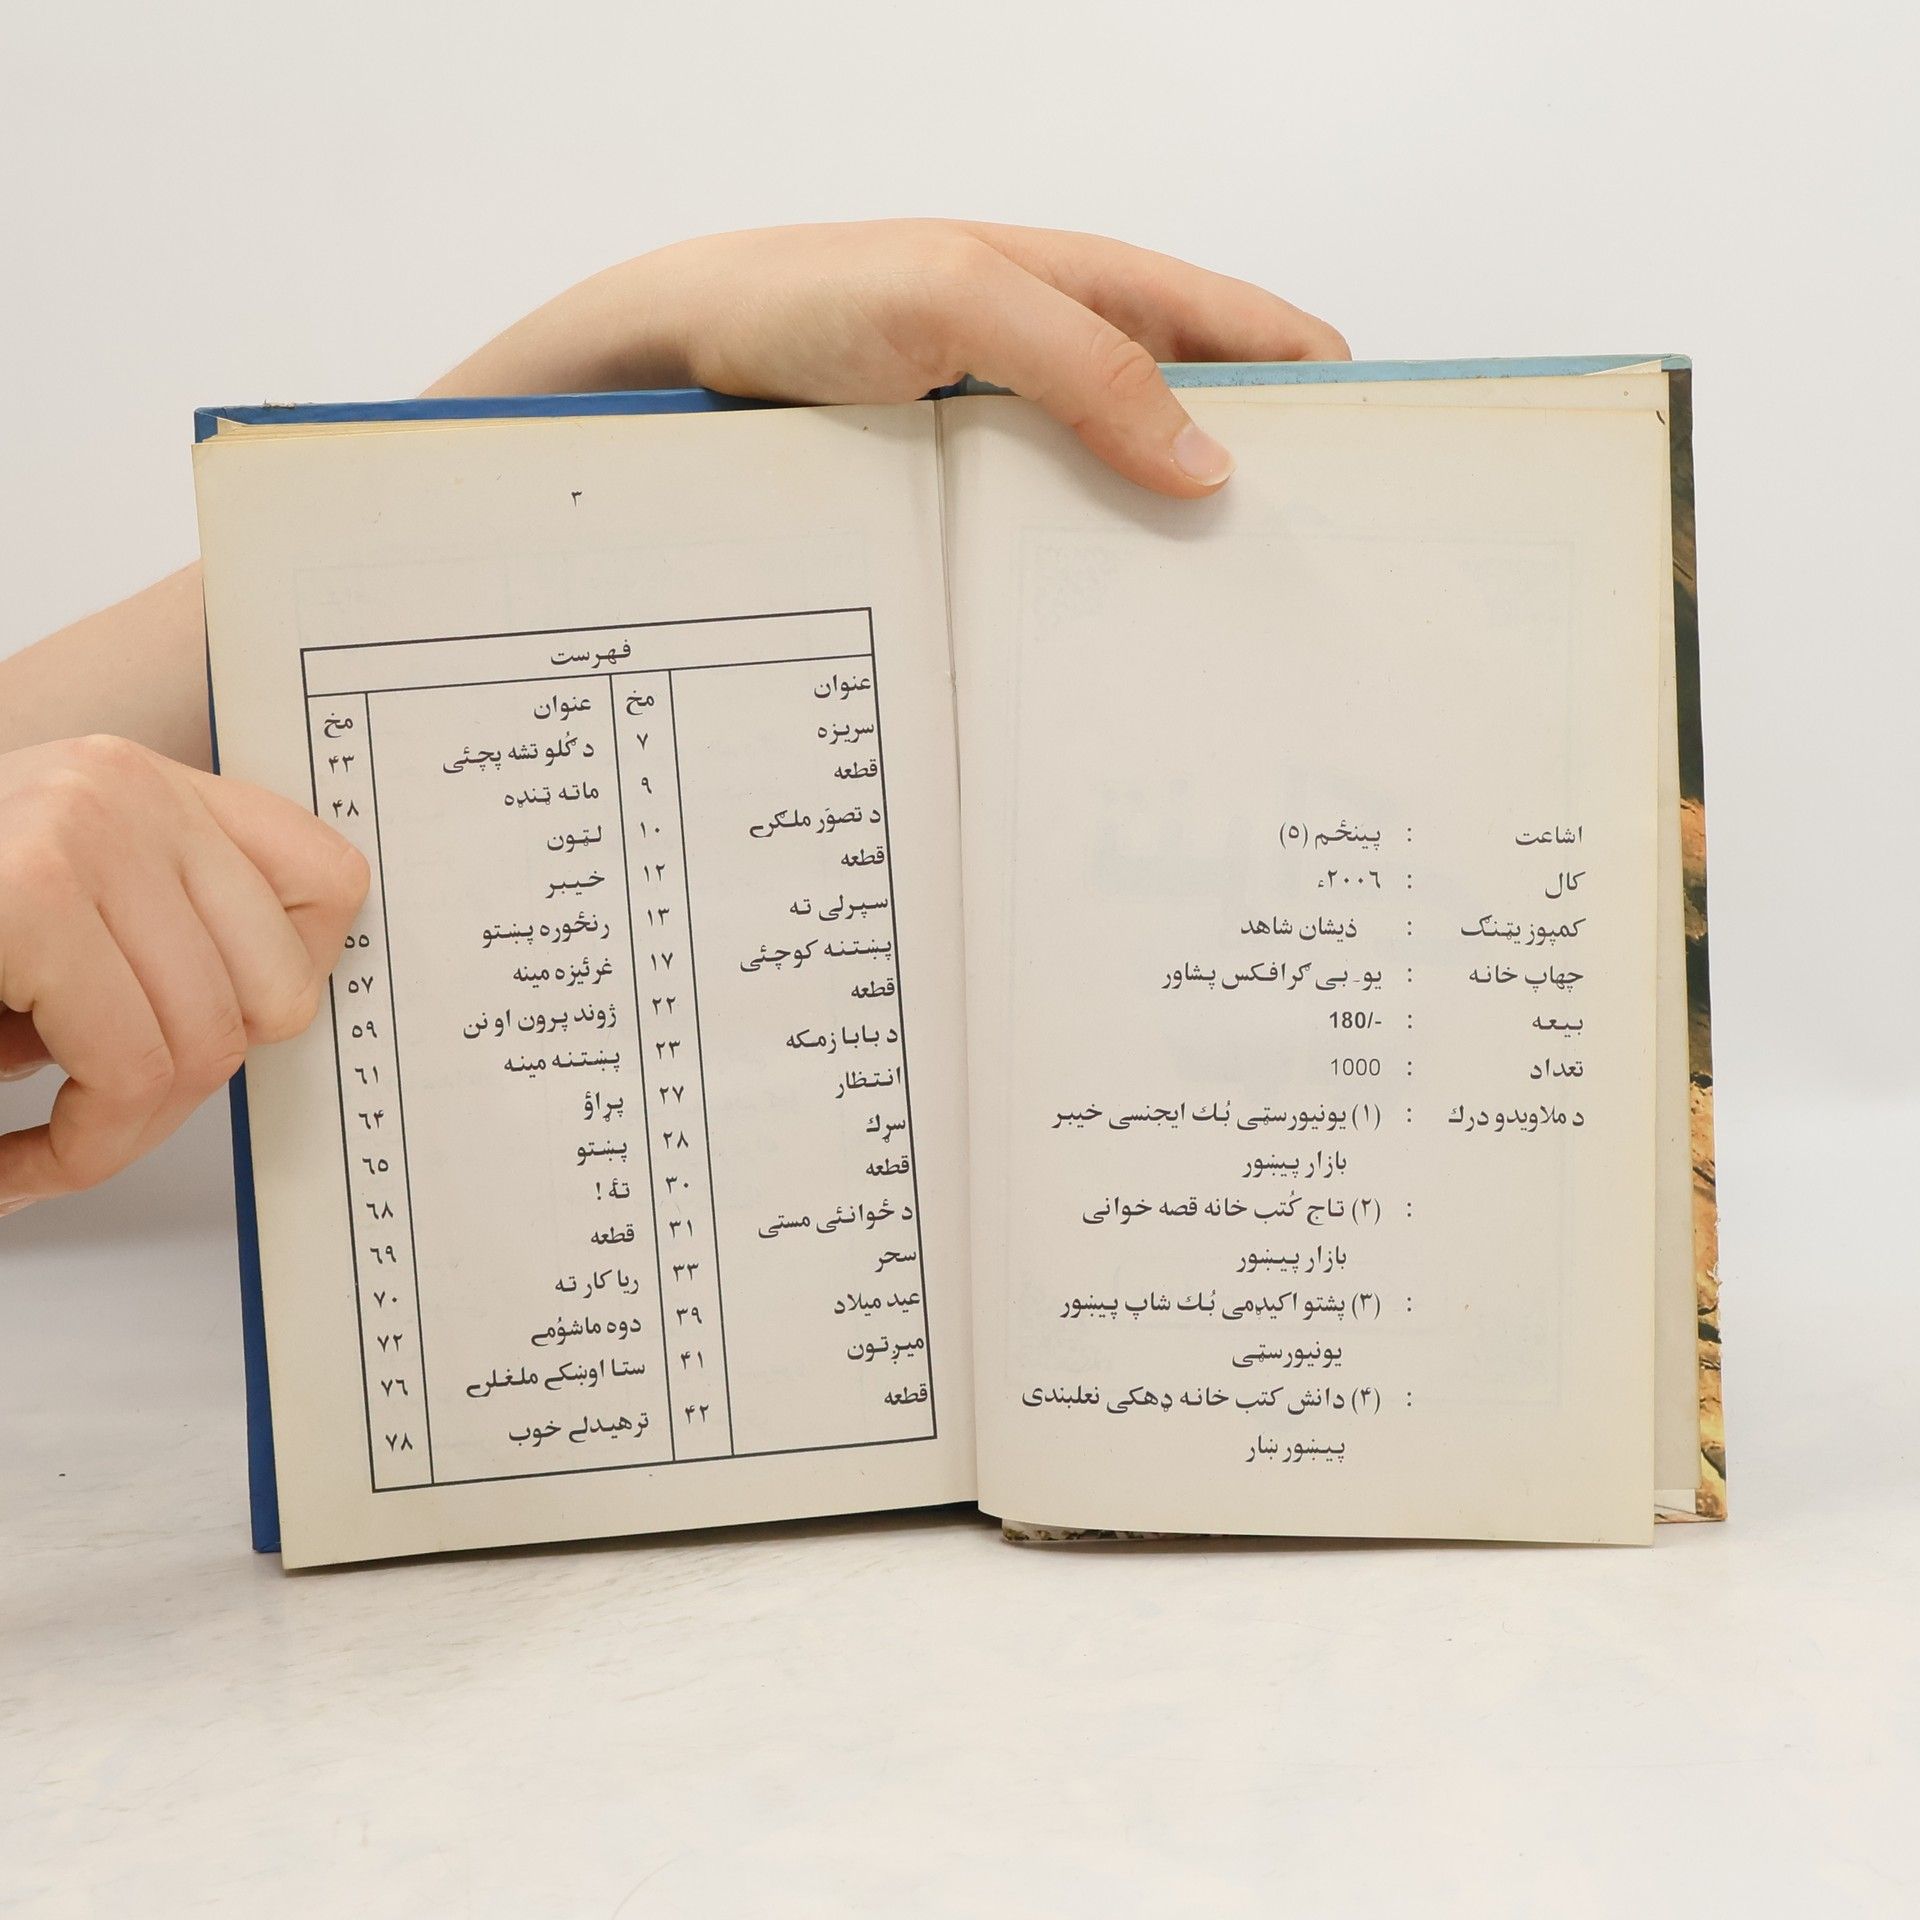 اشاعت : پينځم (٥)
كال : ٢٠٠٦ء
كمپوزيټنګ : ذيشان شاهد
چهاپ خانه : يو۔ بی ګرافكس پشاور
بيعه : 180/-
تعداد : 1000
د ملاويدو درك : (١) يونيورسټی بُك ايجنسی خيبر
بازار پيښور
: (٢) تاج كُتب خانه قصه خوانی
بازار پيښور
: (٣) پشتو اكيډمی بُك شاپ پيښور
يونيورسټی
: (۴) دانش كتب خانه ډهكی نعلبندی
پيښور ښار
٣
فهرست
عنوان مخ عنوان مخ
سريزه ٧ د ګُلو تشه پچئی ۴٣
قطعه ٩ ماته ټنډه ۴٨
د تصوَر ملګرے ١٠ لټون
قطعه ١٢ خيبر
سپرلی ته ١٣ رنځوره پښتو ٥٥
پښتنه كوچئی ١٧ غرئيزه مينه ٥٧
قطعه ٢٢ ژوند پرون او نن ٥٩
د بابا زمكه ٢٣ پښتنه مينه ٦١
انتظار ٢٧ پړاؤ ٦۴
سړك ٢٨ پښتو ٦٥
قطعه ٣٠ تهٔ ! ٦٨
د ځوانئی مستی ٣١ قطعه ٦٩
سحر ٣٣ ريا كار ته ٧٠
عيد ميلاد ٣٩ دوه ماشوُمے ٧٢
ميږتون ۴١ ستا اوښكے ملغلرے ٧٦
قطعه ۴٢ ترهيدلے خوب ٧٨